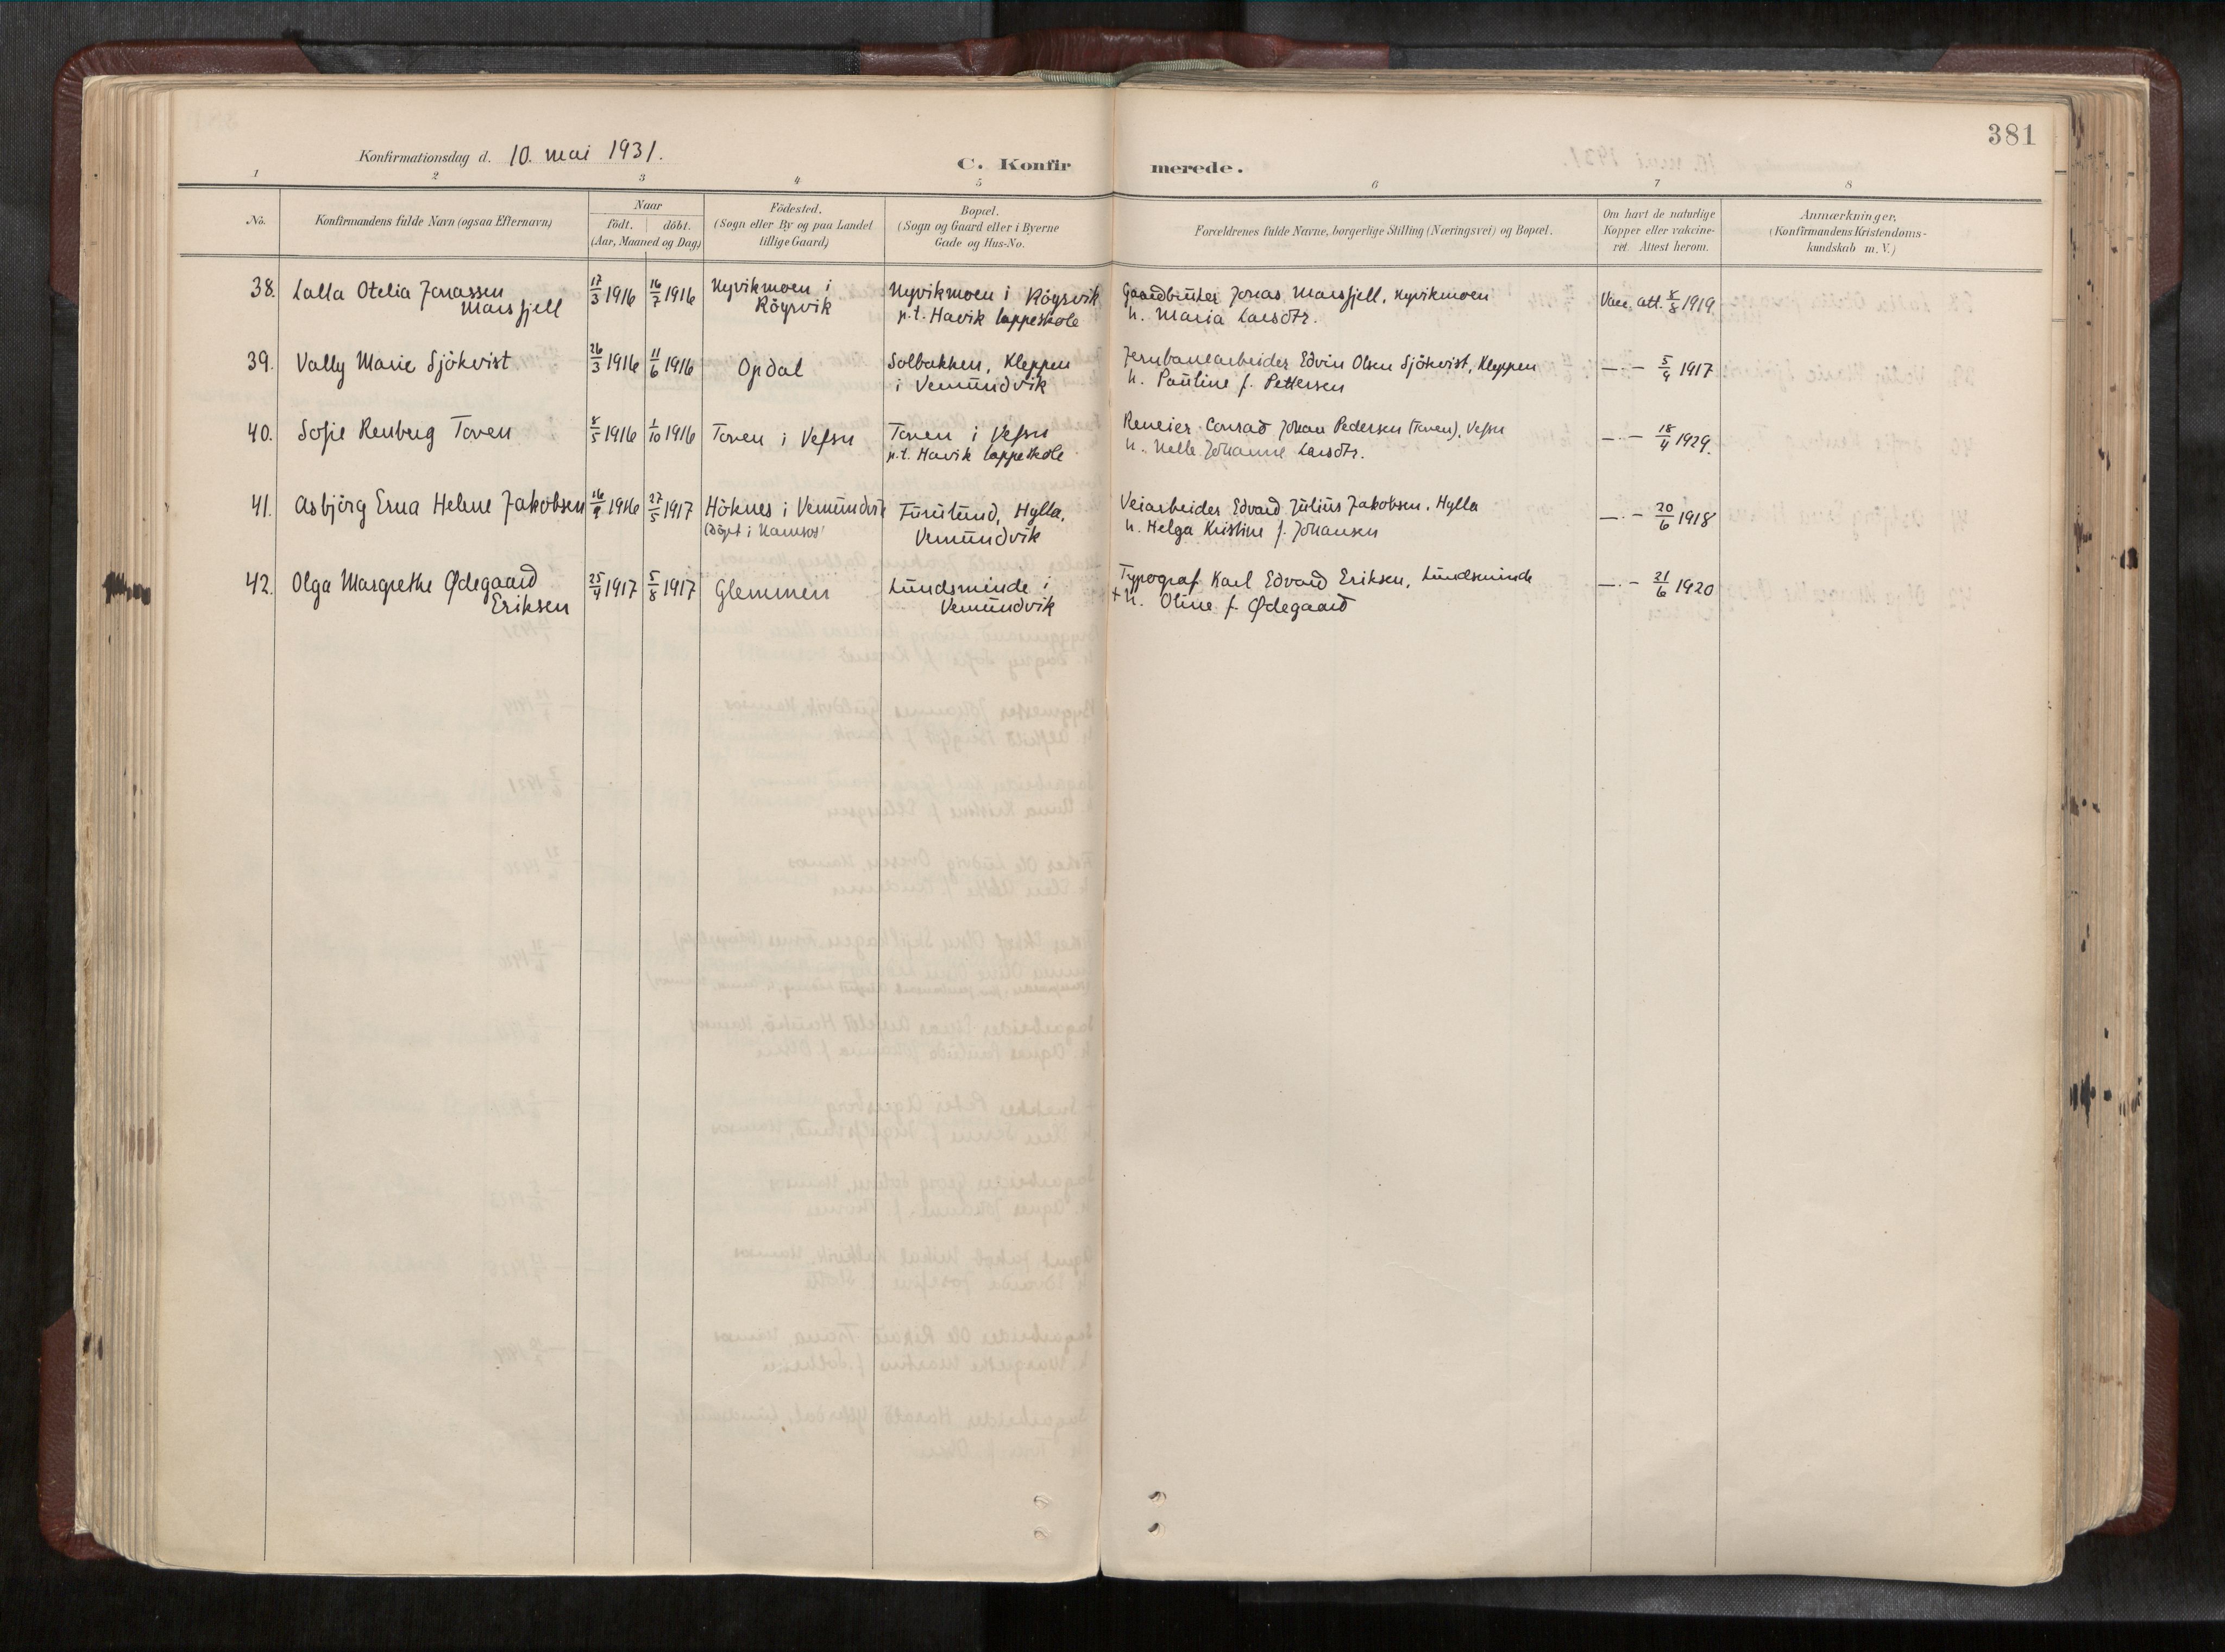 381
Konfirmationsdag d. 10. mai 1931.
C. Konfirmerede.
1 2 3 4 5 6 7 8
No.
Konfirmandens fulde Navn (ogsaa Efternavn)
Naar
födt. döbt.
(Aar, Maaned og Dag)
Födested.
(Sogn eller By og paa Landet
tillige Gaard)
Bopæl.
(Sogn og Gaard eller i Byerne
Gade og Hus-No.
Forældrenes fulde Navne, borgerlige Stilling (Næringsvei) og Bopæl.
Om havt de naturlige
Kopper eller vakcine-
ret. Attest herom.
Anmærkninger,
(Konfirmandens Kristendoms-
kundskab m. V.)
38. Lalla Otelia Jonassen
Marsfjell
17/3 1916
16/7 1916
Nyvikmoen i
Röyrvik
Nyvikmoen i Röyrvik
p.t. Havik lappeskole
Gaardbruker Jonas Marsfjell, Nyvikmoen
h. Maria Larsdtr.
Vacc. att. 8/8 1919
39. Vally Marie Sjökvist
26/3 1916
11/6 1916
Opdal
Solbakken, Kleppen
i Vemundvik
Jernbanearbeider Edvin Olsen Sjökvist, Kleppen
h. Pauline f. Pettersen
— . — 5/9 1917
40. Sofie Renberg Toven
8/5 1916
1/10 1916
Toven i Vefsn
Toven i Vefsn
p.t. Havik lappeskole
Reneier Conrad Johan Pedersen (Toven), Vefsn
h. Nelle Johanne Larsdtr.
— . — 18/4 1929.
41. Asbjörg Erna Helene Jakobsen
16/9 1916
27/5 1917
Höknes i Vemundvik
(döpt i Namsos)
Furulund, Hylla,
Vemundvik
Veiarbeider Edvard Julius Jakobsen, Hylla
h. Helga Kristine f. Johansen
— . — 20/6 1918
42. Olga Margrethe Ødegaard
Eriksen
25/4 1917
5/8 1917
Glemmen
Lundsminde i
Vemundvik
Typograf Karl Edvard Eriksen, Lundsminde
+ h. Oline f. Ødegaard
— . — 21/6 1920